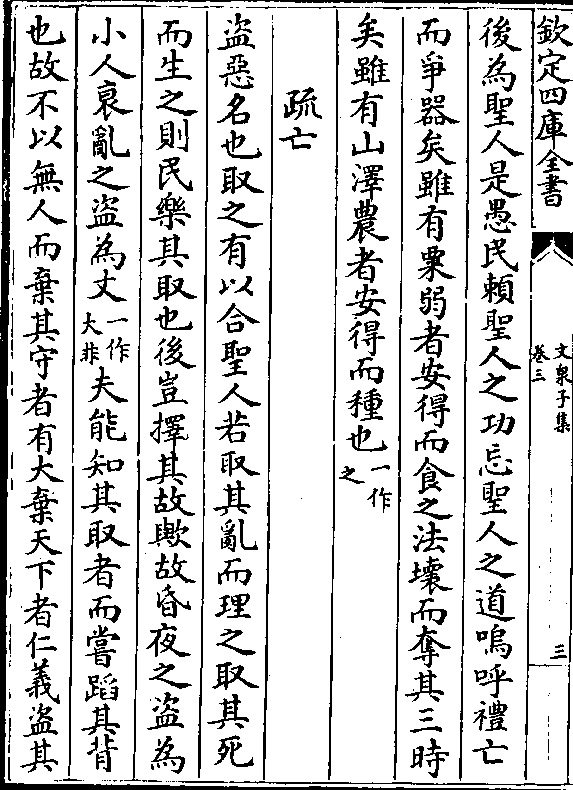 欽定四庫全書
文泉子集
卷三
三
後為聖人是愚民賴聖人之功忘聖人之道嗚呼禮亡
而爭器矣雖有粟弱者安得而食之法壞而奪其三時
矣雖有山澤農者安得而種也一作之
疏亡
盜惡名也取之有以合聖人若取其亂而理之取其死
而生之則民樂其取也後豈擇其故歟故昏夜之盜為
小人衰亂之盜為丈一作大非夫能知其取者而嘗蹈其背
也故不以無人而棄其守者有大棄天下者仁義盜其